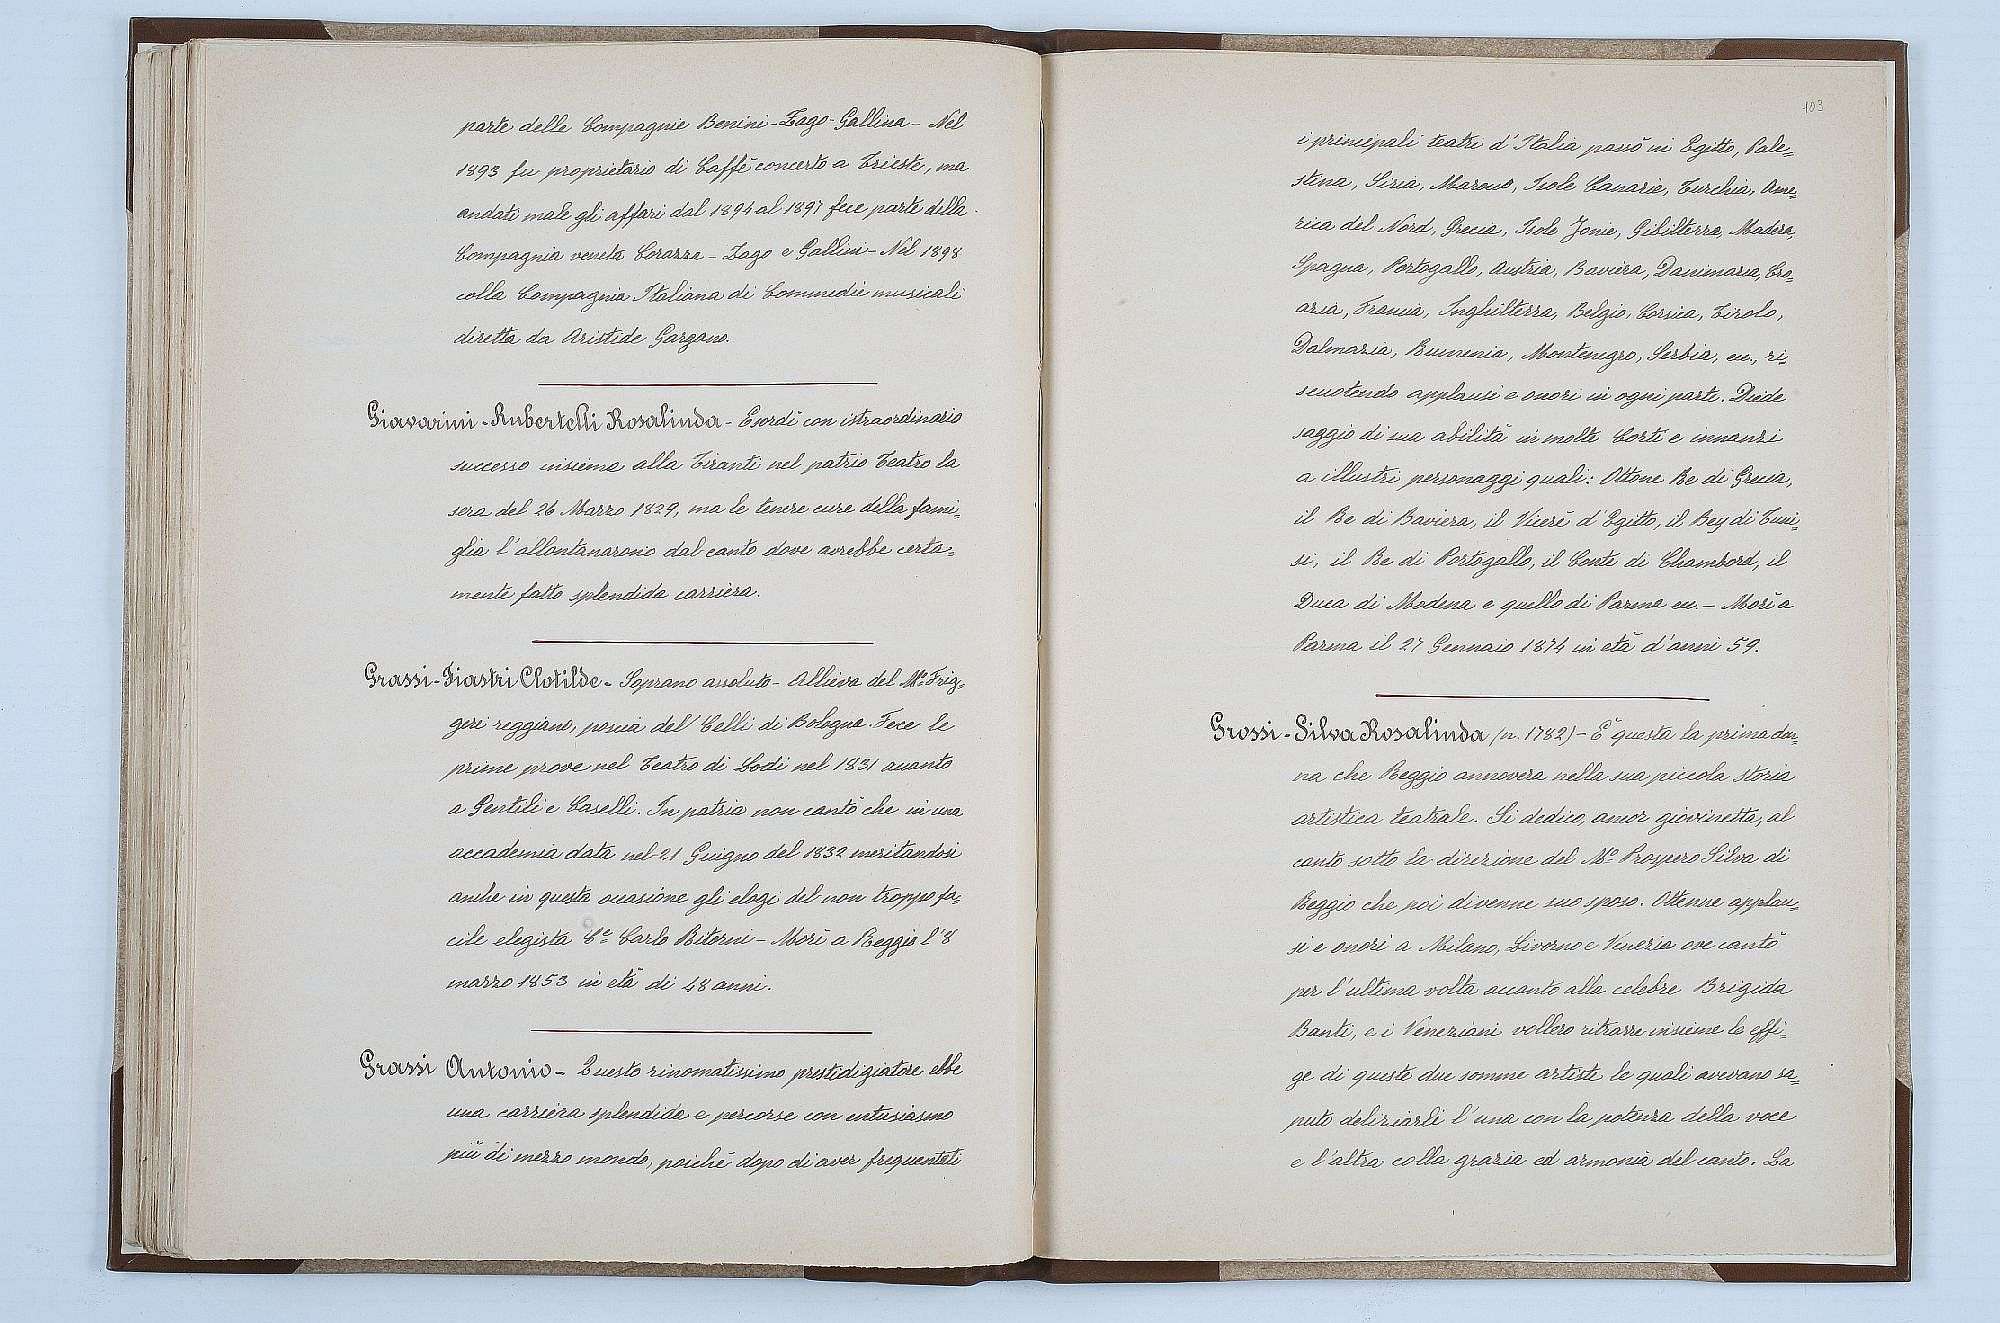 parte delle Compagnie Benini-Zago-Gallina- Nel
1893 fu proprietario di Caffè concerto a Trieste, ma
andati male gli affari dal 1894 al 1897 fece parte della
Compagnia veneta Corazza - Zago e Gallini - Nel 1898
colla Compagnia Italiana di Commedie musicali
diretta da Aristide Gargano.
Giavarini-Rubertelli Rosalinda - Esordì con istraordinario
successo insieme alla Tiranti nel patrio Teatro la
sera del 26 Marzo 1829, ma le tenere cure della fami-
glia l'allontanarono dal canto dove avrebbe certa-
mente fatto splendida carriera.
Grassi-Fiastri Clotilde - Soprano assoluto - Allieva del Mo. Frig-
geri reggiano, poscia del Celli di Bologna. Fece le
prime prove nel Teatro di Lodi nel 1831 accanto
a Gentili e Caselli. In patria non cantò che in una
accademia data nel 21 Giugno del 1832 meritandosi
anche in questa occasione gli elogi del non troppo fa-
cile elegista Ce. Carlo Ritorni - Morì a Reggio l'8
marzo 1853 in età di 48 anni.
Grassi Antonio - Questo rinomatissimo prestidigiatore ebbe
una carriera splendida e percorse con entusiasmo
più di mezzo mondo, poichè dopo di aver frequentati
103
i principali teatri d'Italia passò in Egitto, Pale-
stina, Siria, Marocco, Isole Canarie, Turchia, Ame-
rica del Nord, Grecia, Isole Jonie, Gibilterra, Madera,
Spagna, Portogallo, Austria, Baviera, Danimarca, Cro-
azia, Francia, Inghilterra, Belgio, Corsica, Tirolo,
Dalmazia, Rumenia, Montenegro, Serbia, ecc., ri-
scuotendo applausi e onori in ogni parte. Diede
saggio di sua abilità in molte Corti e innanzi
a illustri personaggi quali: Ottone Re di Grecia,
il Re di Baviera, il Vicerè d'Egitto, il Bey di Tuni-
si, il Re di Portogallo, il Conte di Chambord, il
Duca di Modena e quello di Parma ecc. - Morì a
Parma il 27 Gennaio 1874 in età d'anni 59.
Grossi-Silva Rosalinda (n. 1782) - È questa la prima don-
na che Reggio annovera nella sua piccola storia
artistica teatrale. Si dedicò, ancor giovinetta, al
canto sotto la direzione del Mo. Prospero Silva di
Reggio che poi divenne suo sposo. Ottenne applau-
si e onori a Milano, Livorno e Venezia ove cantò
per l'ultima volta accanto alla celebre Brigida
Banti, e i Veneziani vollero ritrarre insieme le effi-
ge di queste due somme artiste le quali avevano sa-
puto deliziarli l'una con la potenza della voce
e l'altra colla grazia ed armonia del canto. La